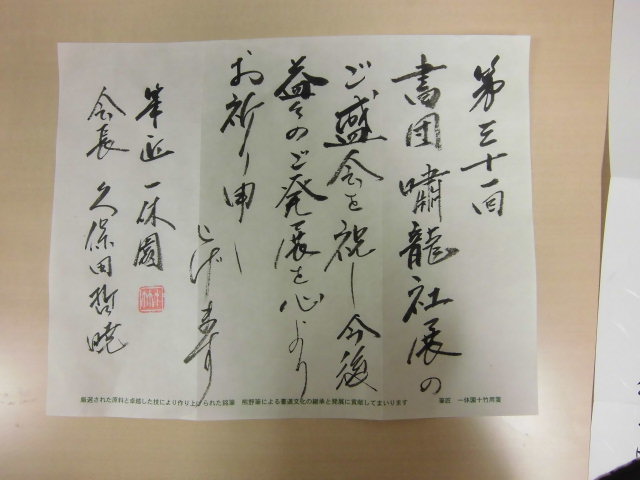 第三十一回
書団 嘯龍社展の
ご盛会を祝し今後
益々のご発展を心より
お祈り申し
上げます
筆匠 一休園
会長 久保田哲暁
厳選された原料と卓越した技により作り上げられた銘筆 熊野筆による書道文化の継承と発展に貢献してまいります
筆匠 一休園十竹用箋